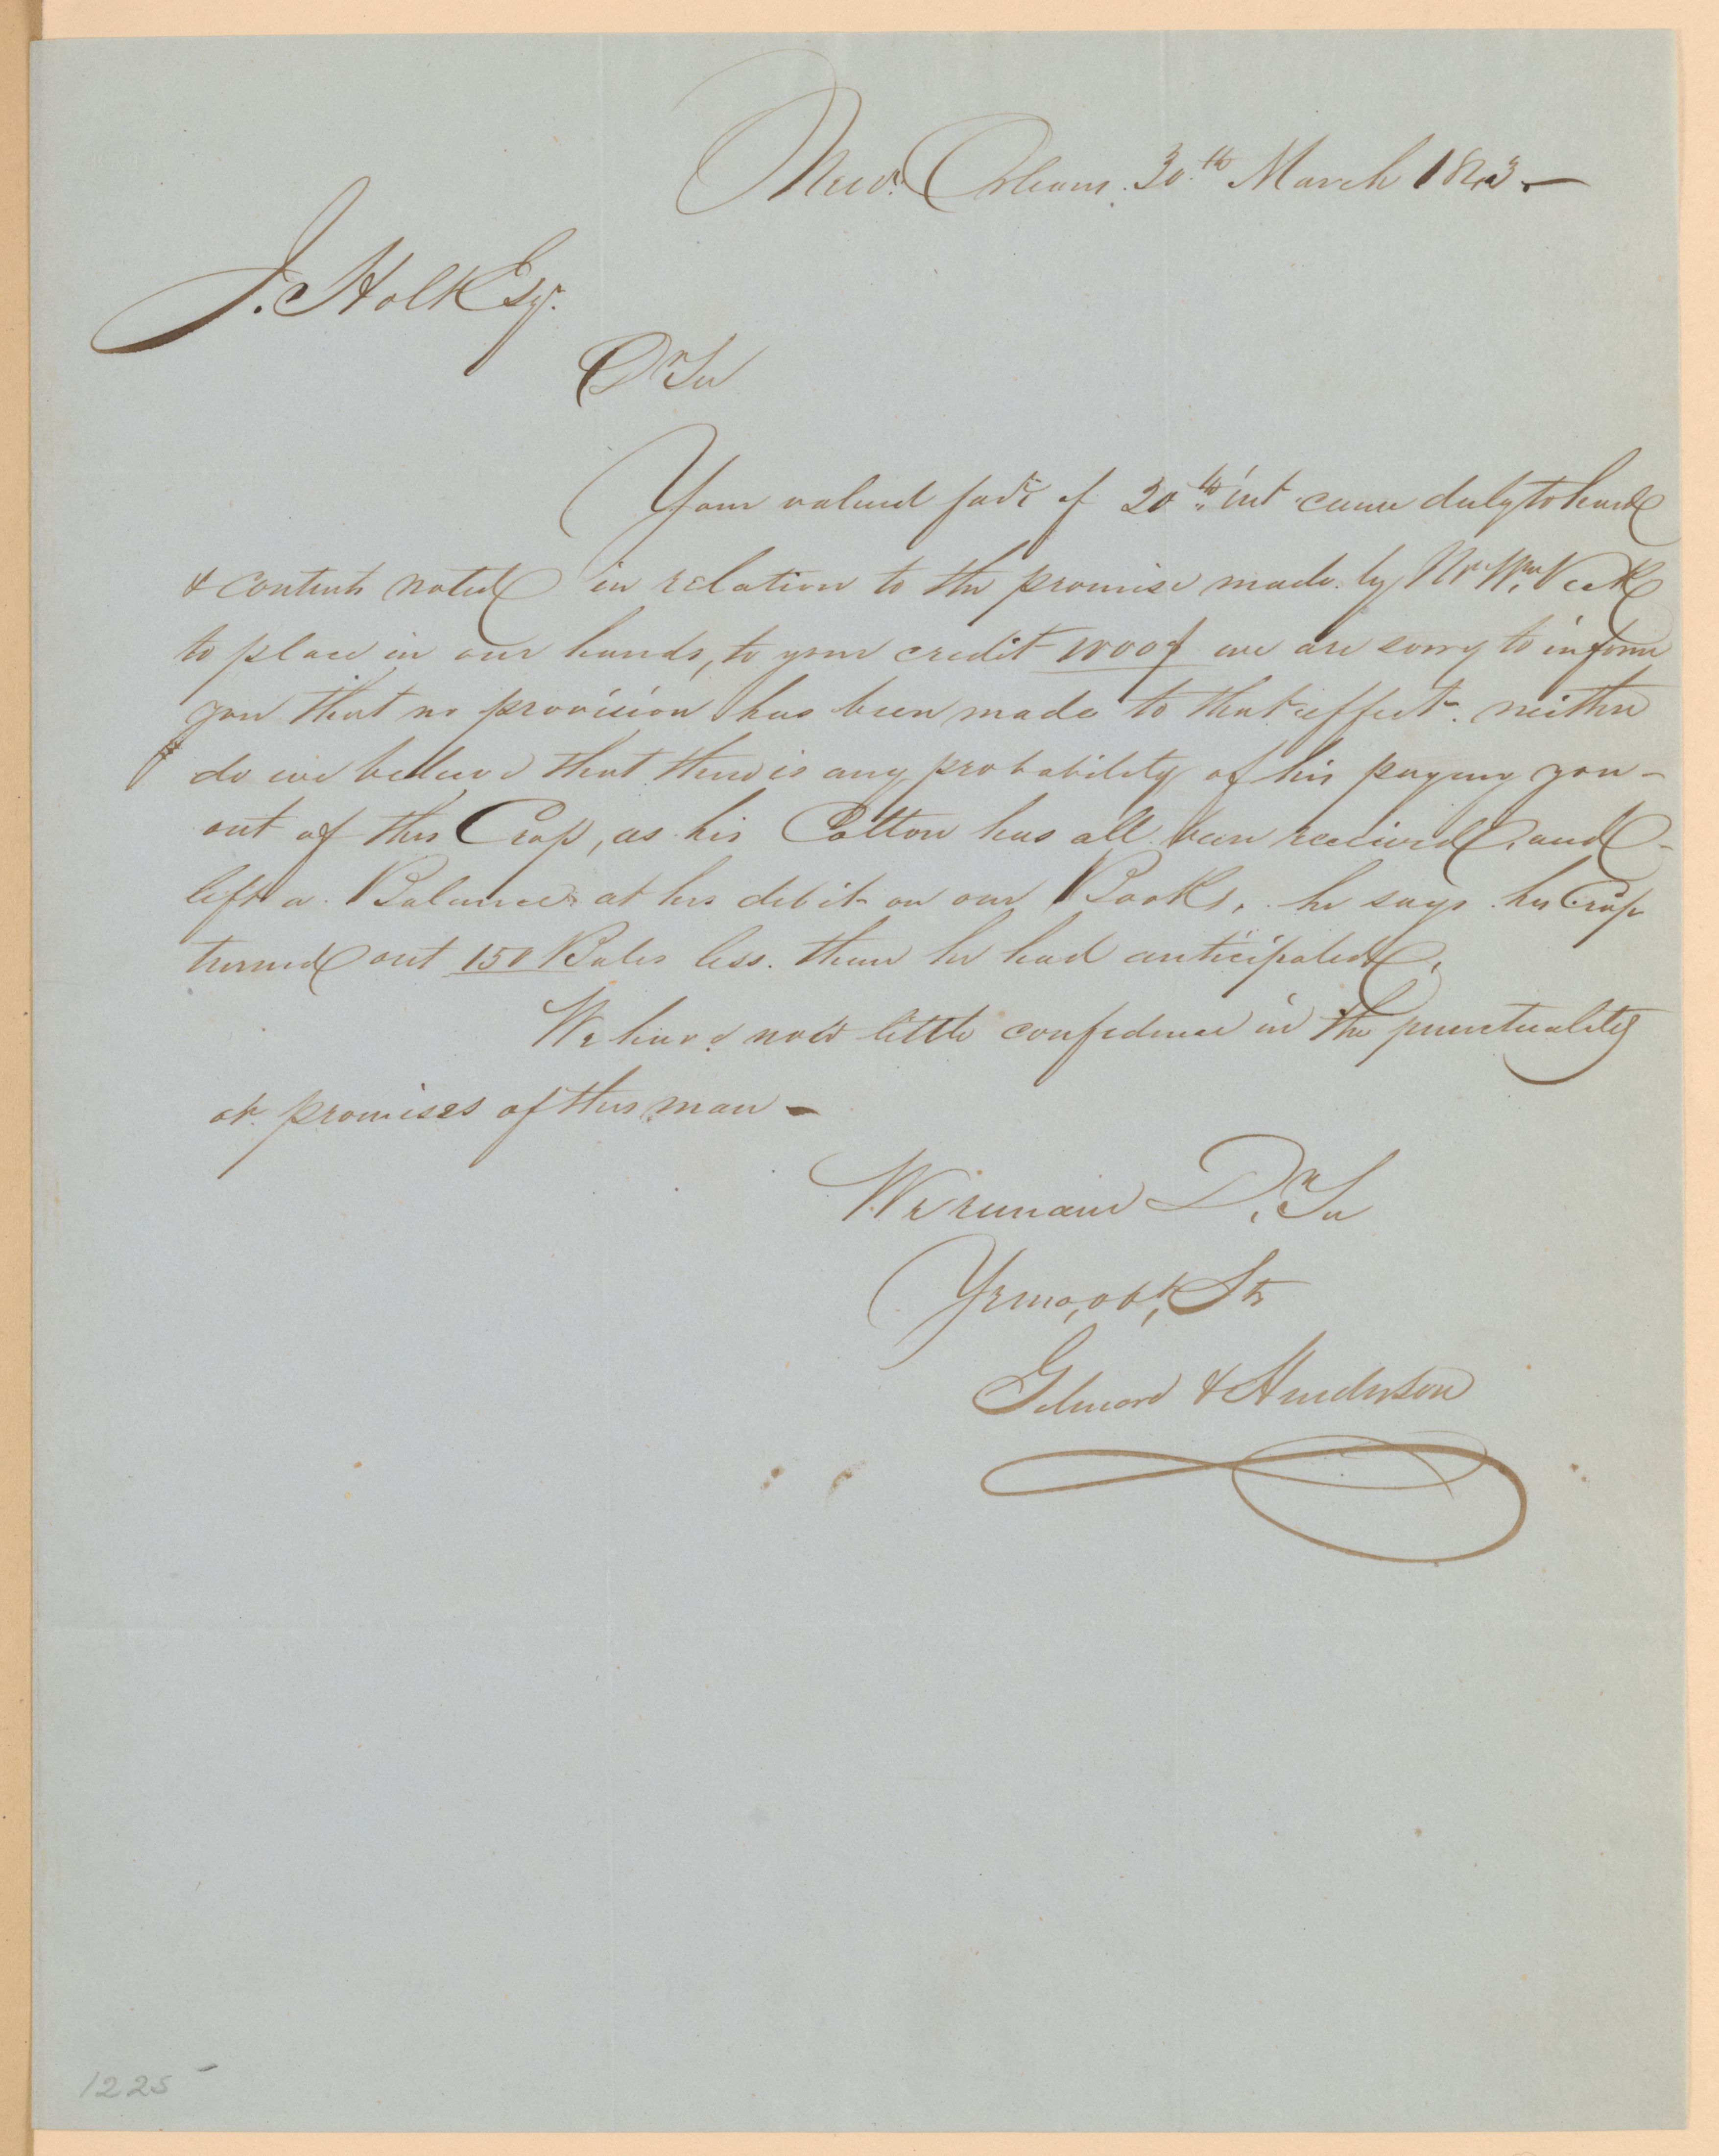 New Orleans. 30th March 1843.—
J. Holt Esqr.
Dr Sir
Your valued favr of 20th inst came duly to hand
& contents noted in relation to the promise made by Mr Wm
to place in our hands, to your credit 1000$ we are sorry to inform
you that no provision has been made to that effect. neither
do we believe that there is any probability of his paying you -
out of this Crop, as his Cotton has all been received, and -
left a Balance at his debit on our Books, he says his Crop
turned out 150 Bales less than he had anticipated,
We have now little confidence in the punctuality
or promises of this man —
We remain Dr, Sir
Yr mo, obt, Sts
& Henderson
1225